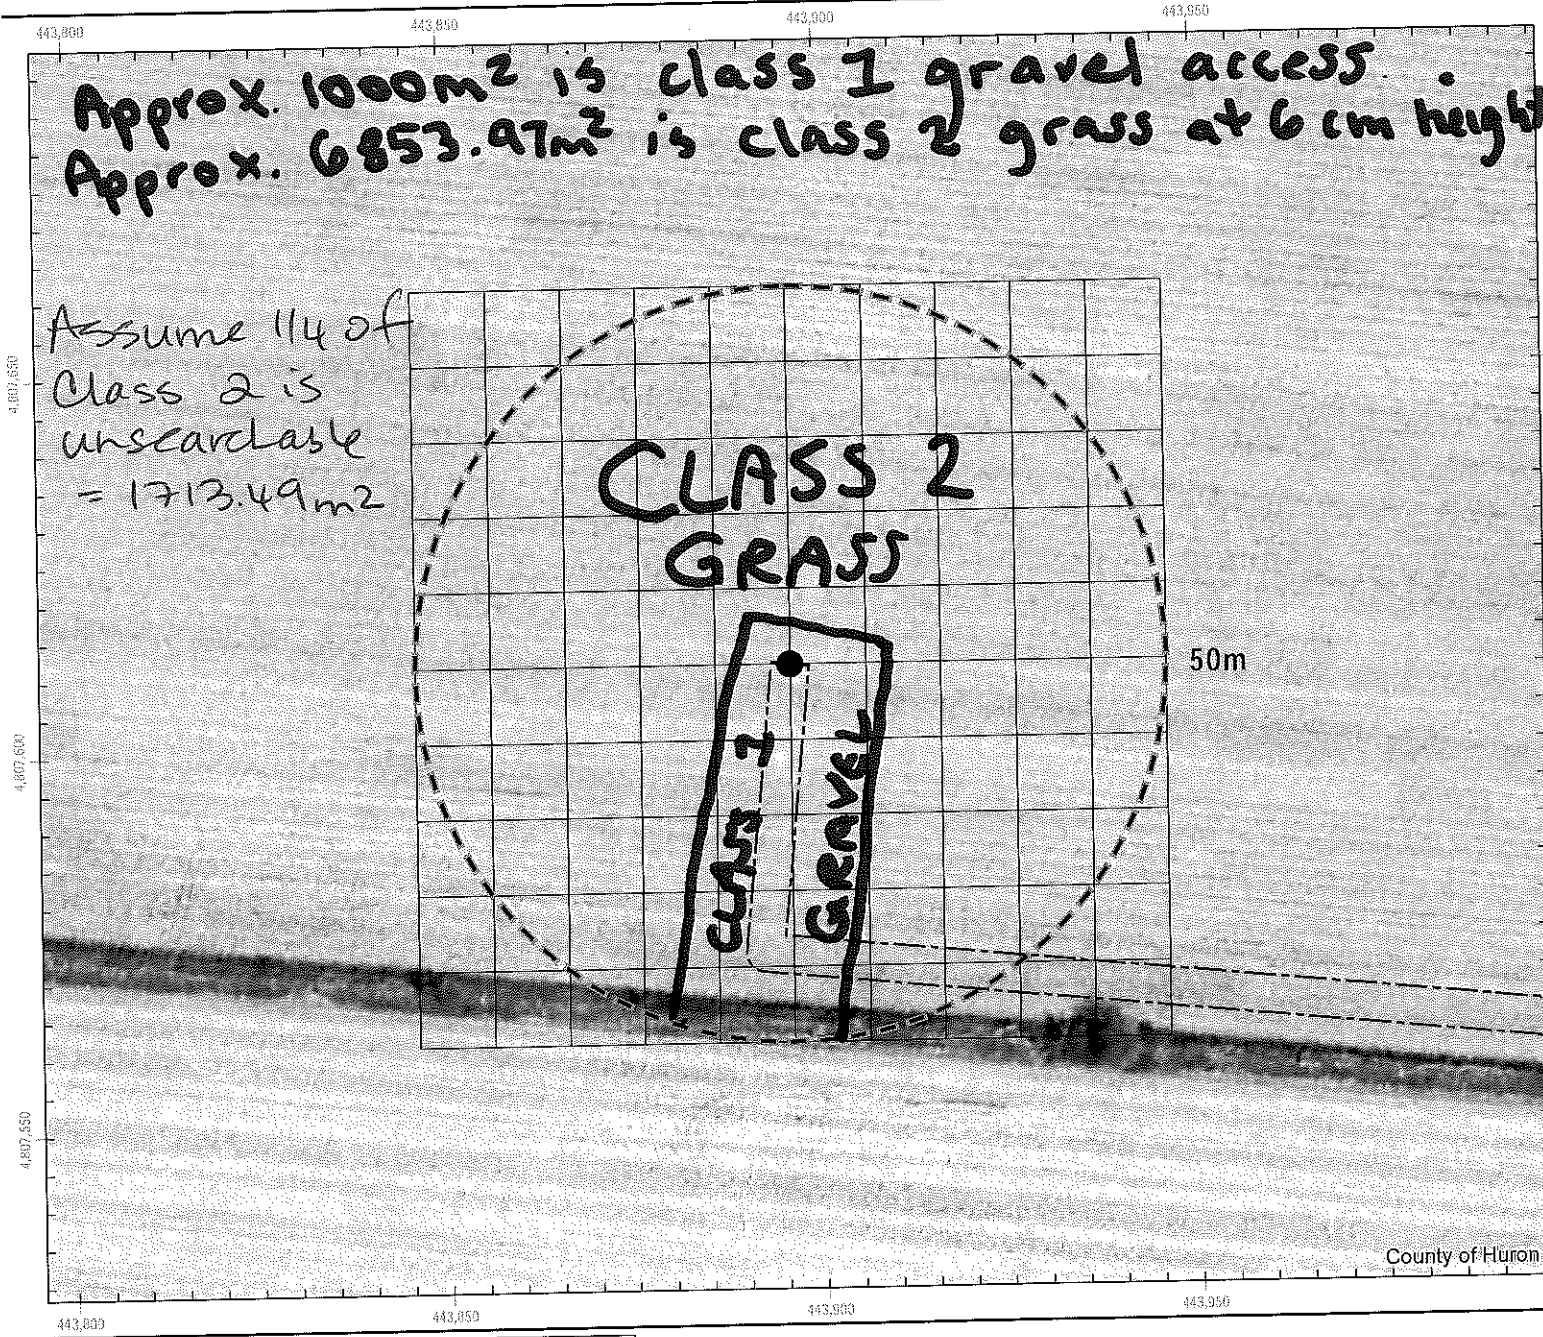 443,800 443,850 443,900 443,950
Approx. 1000m² is class 1 gravel access.
Approx. 6853.97m² is class 2 grass at 6 cm height
Assume 1/4 of
Class 2 is
unsearchable
= 1713.49m2
4,807,650
CLASS 2
GRASS
50m
CLASS 1
GRAVEL
4,807,600
4,807,550
County of Huron
443,800 443,850 443,900 443,950